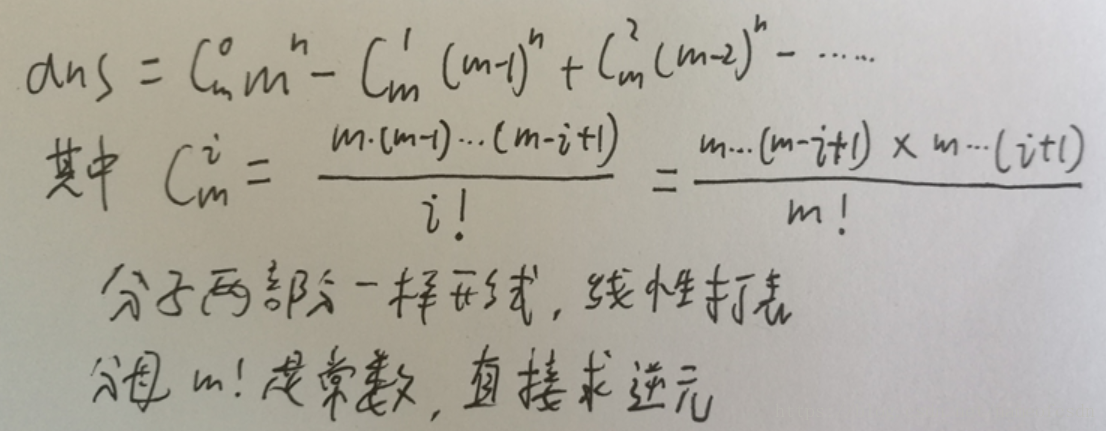 ans = C_m^0 m^n - C_m^1 (m-1)^n + C_m^2 (m-2)^n - ......
其中 C_m^i = \frac{m·(m-1)...(m-i+1)}{i!} = \frac{m...(m-i+1) × m...(i+1)}{m!}
分子两部分一样形式, 线性打表
分母 m! 是常数, 直接求逆元